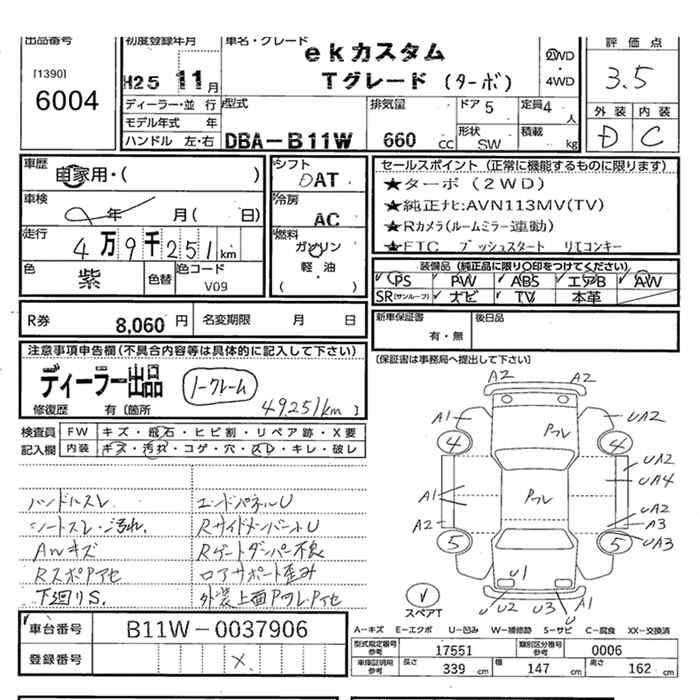 出品番号
[1390]
6004
初度登録年月
H25 11月
車名・グレード
ekカスタム
Tグレード (ターボ)
2WD
・
4WD
評価点
3.5
外装 内装
D C
ディーラー・並行
モデル年式 年
ハンドル 左・右
型式
DBA-B11W
排気量
660 cc
ドア 5
形状 SW
定員 4人
積載 kg
車歴
自家用・( )
車検
年 月( 日)
走行
4万9千251km
色
紫
色替
色コード
V09
シフト
DAT
冷房
AC
燃料
ガソリン
軽・油
( )
セールスポイント (正常に機能するものに限ります)
★ターボ(2WD)
★純正ナビ:AVN113MV(TV)
★Rカメラ(ルームミラー連動)
★ETC プッシュスタート リモコンキー
装備品 (純正品に限り〇印をつけてください)
PS PW ABS エアB AW
SR(サンルーフ) ナビ TV 本革
R券 8,060円
名変期限 月 日
新車保証書
有・無
後日品
(保証書は事務局へ提出して下さい)
注意事項申告欄(不具合内容等は具体的に記入して下さい)
ディーラー出品
ノークレーム
修復歴 有(箇所 49251km )
検査員
記入欄
FW キズ・飛石・ヒビ割・リペア跡・X要
内装 キズ・汚れ・コゲ・穴・スレ・キレ・破レ
ハンドルスレ
シートスレ・汚れ
AWキズ
Rスポアアセ
下廻りS.
エンドパネルU
RサイドメンバートU
Rゲートダンパー不良
ロアサポート歪み
外装上面PフレPアセ
A2 A2
A1 UA2
Pフレ
4 4
UA2
UA4
A1
Pフレ
UA2
A2 A3
UA3
5 5
U1
U U2 U3 U A1
スペアT
車台番号
B11W-0037906
登録番号
X.
A-キズ E-エクボ U-凹み W-補修跡 S-サビ C-腐食 XX-交換済
型式指定番号
参考
17551
類別区分番号
参考
0006
車庫証明用
参考
長さ 339 cm
幅 147 cm
高さ 162 cm